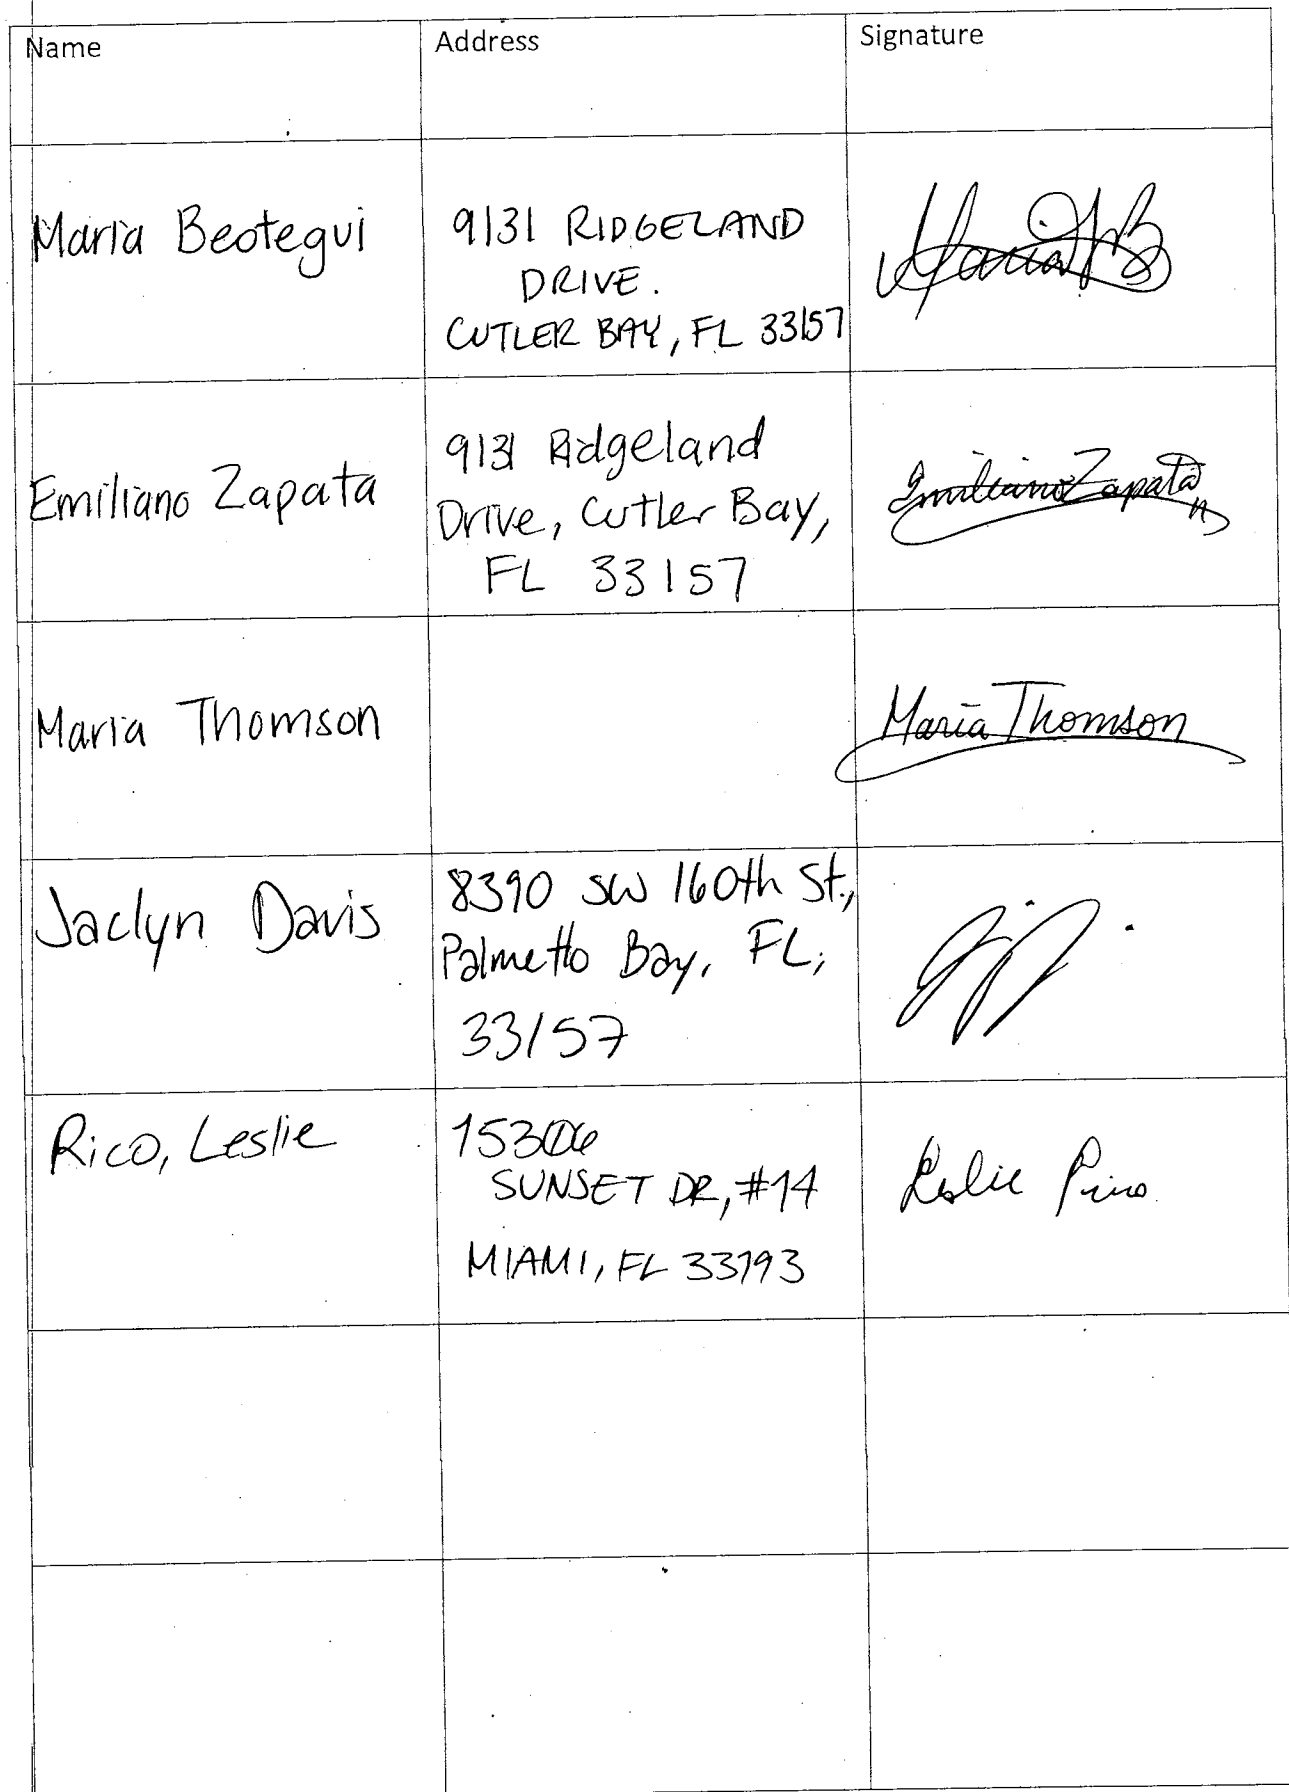 Name Address Signature
Maria Beotegui
9131 RIDGELAND
DRIVE.
CUTLER BAY, FL 33157
Maria
Emiliano Zapata
9131 Ridgeland
Drive, Cutler Bay,
FL 33157
Emiliano Zapata
Maria Thomson
Maria Thomson
Jaclyn Davis
8390 SW 160th St.,
Palmetto Bay, FL,
33157
Rico, Leslie
15306
SUNSET DR, #14
MIAMI, FL 33193
Leslie Rico